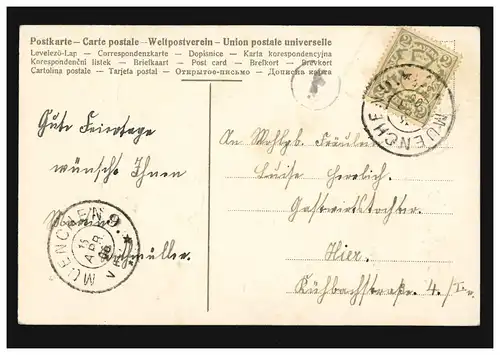 Postkarte – Carte postale – Weltpostverein – Union postale universelle
Levelező-Lap – Correspondenzkarte – Dopisnice – Karta korespondencyjna
Korespondenční listek – Briefkaart – Post card – Brefkort – Brevkort
Cartolina postale – Tarjeta postal – Открытое-письмо – Дописна карта
Gute Feiertage
wünsche Ihnen
MUENCHEN 9.
15
APR
06
2
MUENCHEN
An Wohlgb. Fräulein
Luise Herrlich.
Gastwirtstochter
Hier.
Kühbachstraße 4/I r.